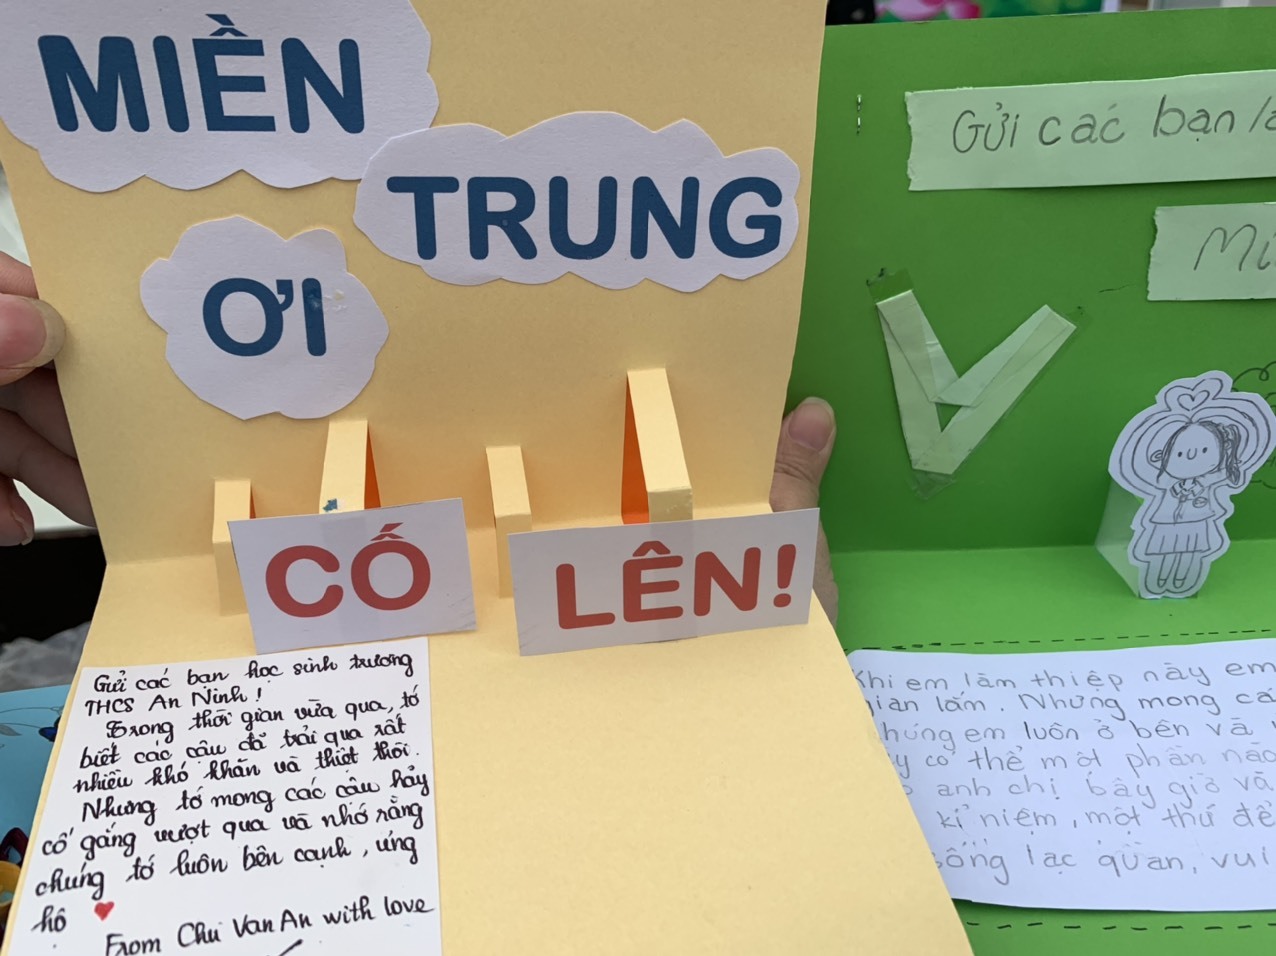 MIỀN
TRUNG
ƠI
CỐ
LÊN!
Gửi các bạn học sinh trường
THCS An Ninh!
Trong thời gian vừa qua, tớ
biết các cậu đã trải qua rất
nhiều khó khăn và thiệt thòi.
Nhưng tớ mong các cậu hãy
cố gắng vượt qua và nhớ rằng
chúng tớ luôn bên cạnh, ủng
hộ
From Chu Van An with love
Gửi các bạn
Khi em làm thiệp này em
lắm. Nhưng mong
chúng em luôn ở bên và
có thể một phần nào
anh chị bây giờ và
kỉ niệm, một thứ để
sống lạc quan, vui